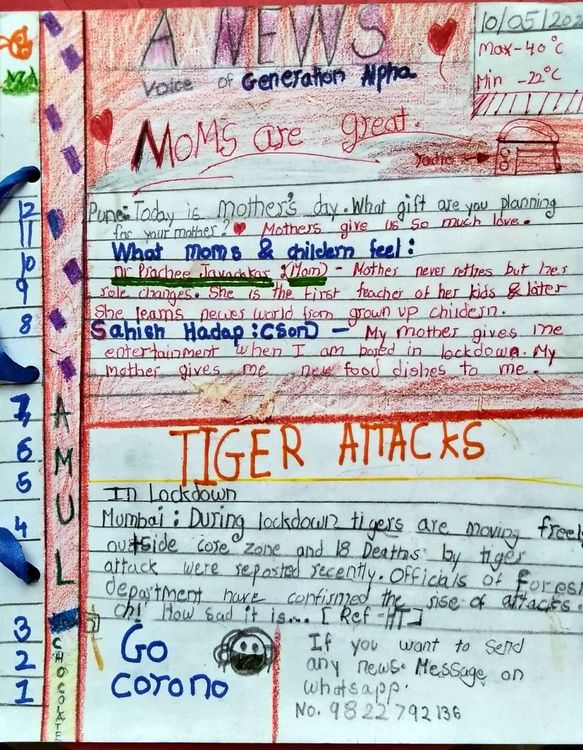 A NEWS
Voice of Generation Alpha
10/05/202
Max-40°c
Min -22°C
Moms are great.
radio
Pune: Today is mother's day. What gift are you planning
for your mother? Mothers give us so much love.
What moms & childern feel:
Dr Prachee Javadekar :(Mom) - Mother never retires but her
role changes. She is the first teacher of her kids & later
She learns newer world from grown up childern.
Sahish Hadap :(Son) - My mother gives me
entertainment when I am bored in lockdown. My
mother gives me new food dishes to me.
TIGER ATTACKS
In Lockdown
Mumbai: During lockdown tigers are moving freely
outside core zone and 18 Deaths by tiger
attack were reported recently. Officials of Forest
department have confirmed the rise of attacks.
Oh! How sad it is... [Ref-HT]
Go
corono
If you want to send
any news. Message on
whatsapp.
No. 9822792136
12
11
10
9
8
7
6
5
4
3
2
1
AMUL
CHOCOLATE